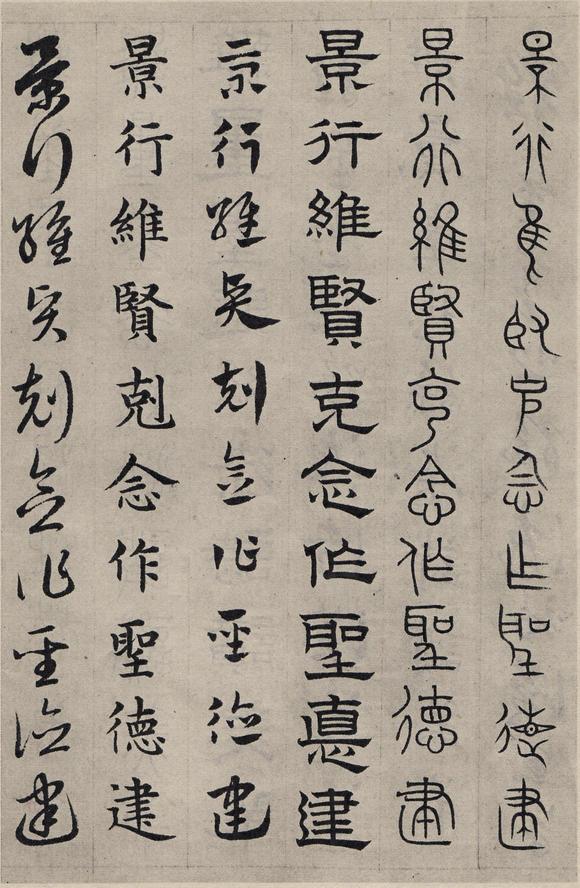 景行隹臤克念乍聖德建
景行維賢克念作聖德建
景行維賢克念作聖悳建
景行維賢剋念作聖德建
景行維賢剋念作聖德建
景行維賢剋念作聖德建